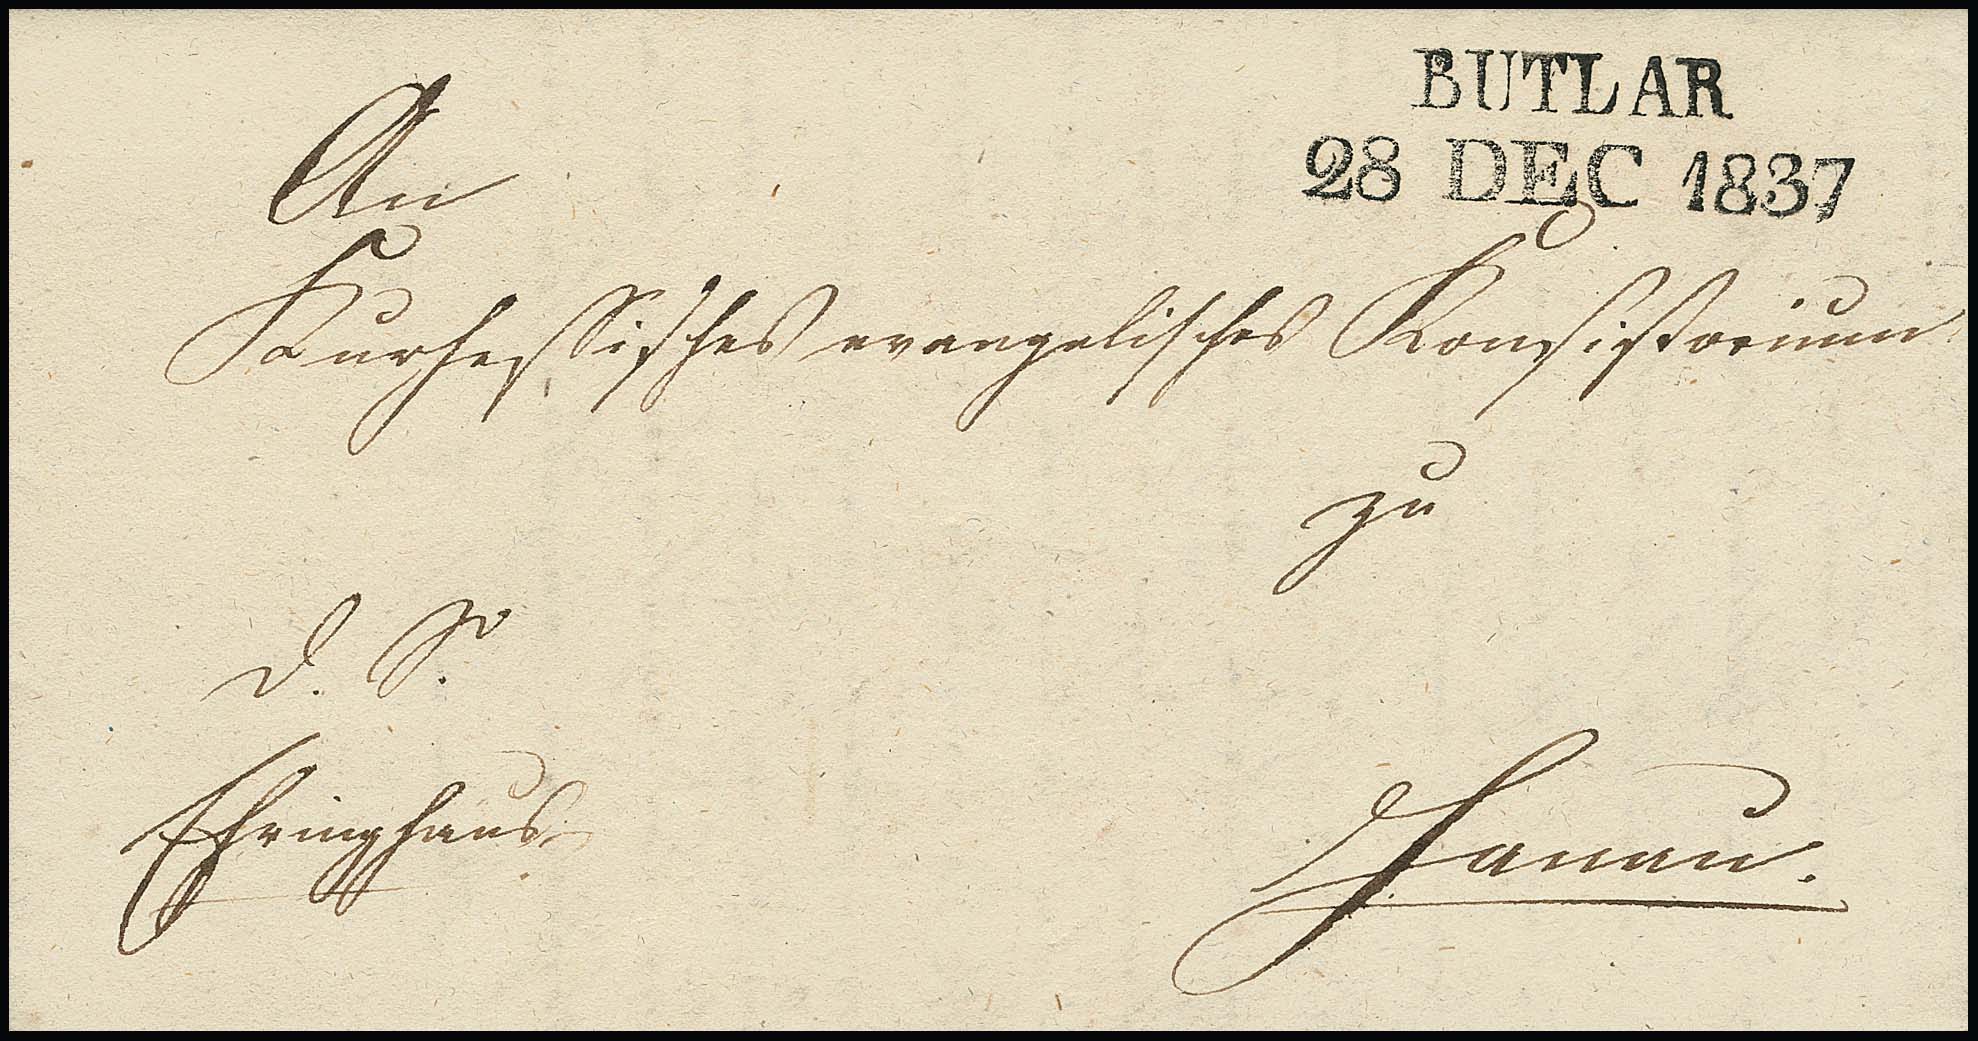 BUTLAR
28 DEC 1837
An
Kurhessisches evangelisches Konsistorium
zu
d. S.
Ehringhaus
Hanau.